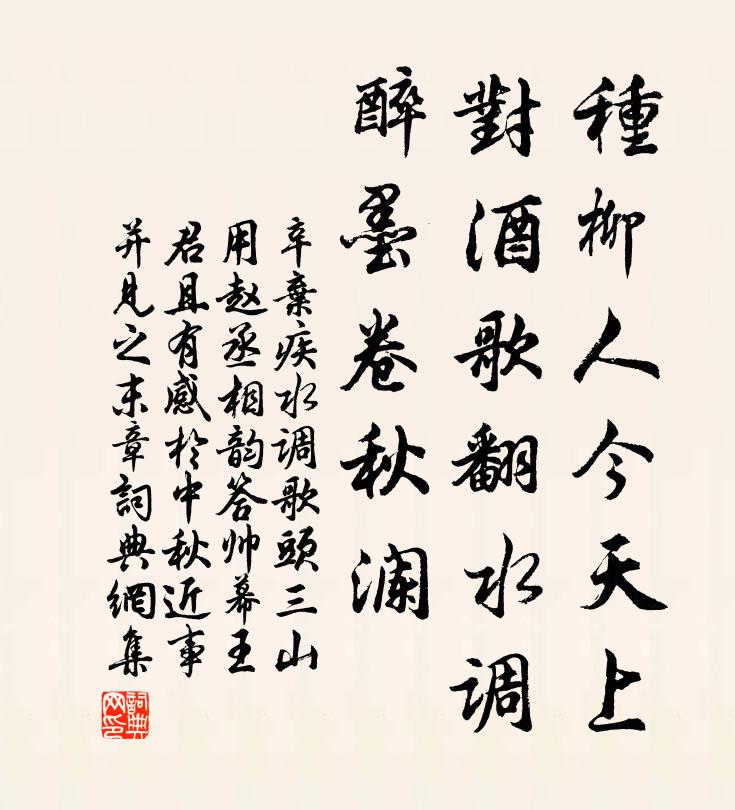 種柳人今天上
對酒歌翻水调
醉墨卷秋澜
辛棄疾水调歌頭三山
用赵丞相韵答帅幕王
君且有感於中秋近事
并見之末章詞典網集
詞典網印